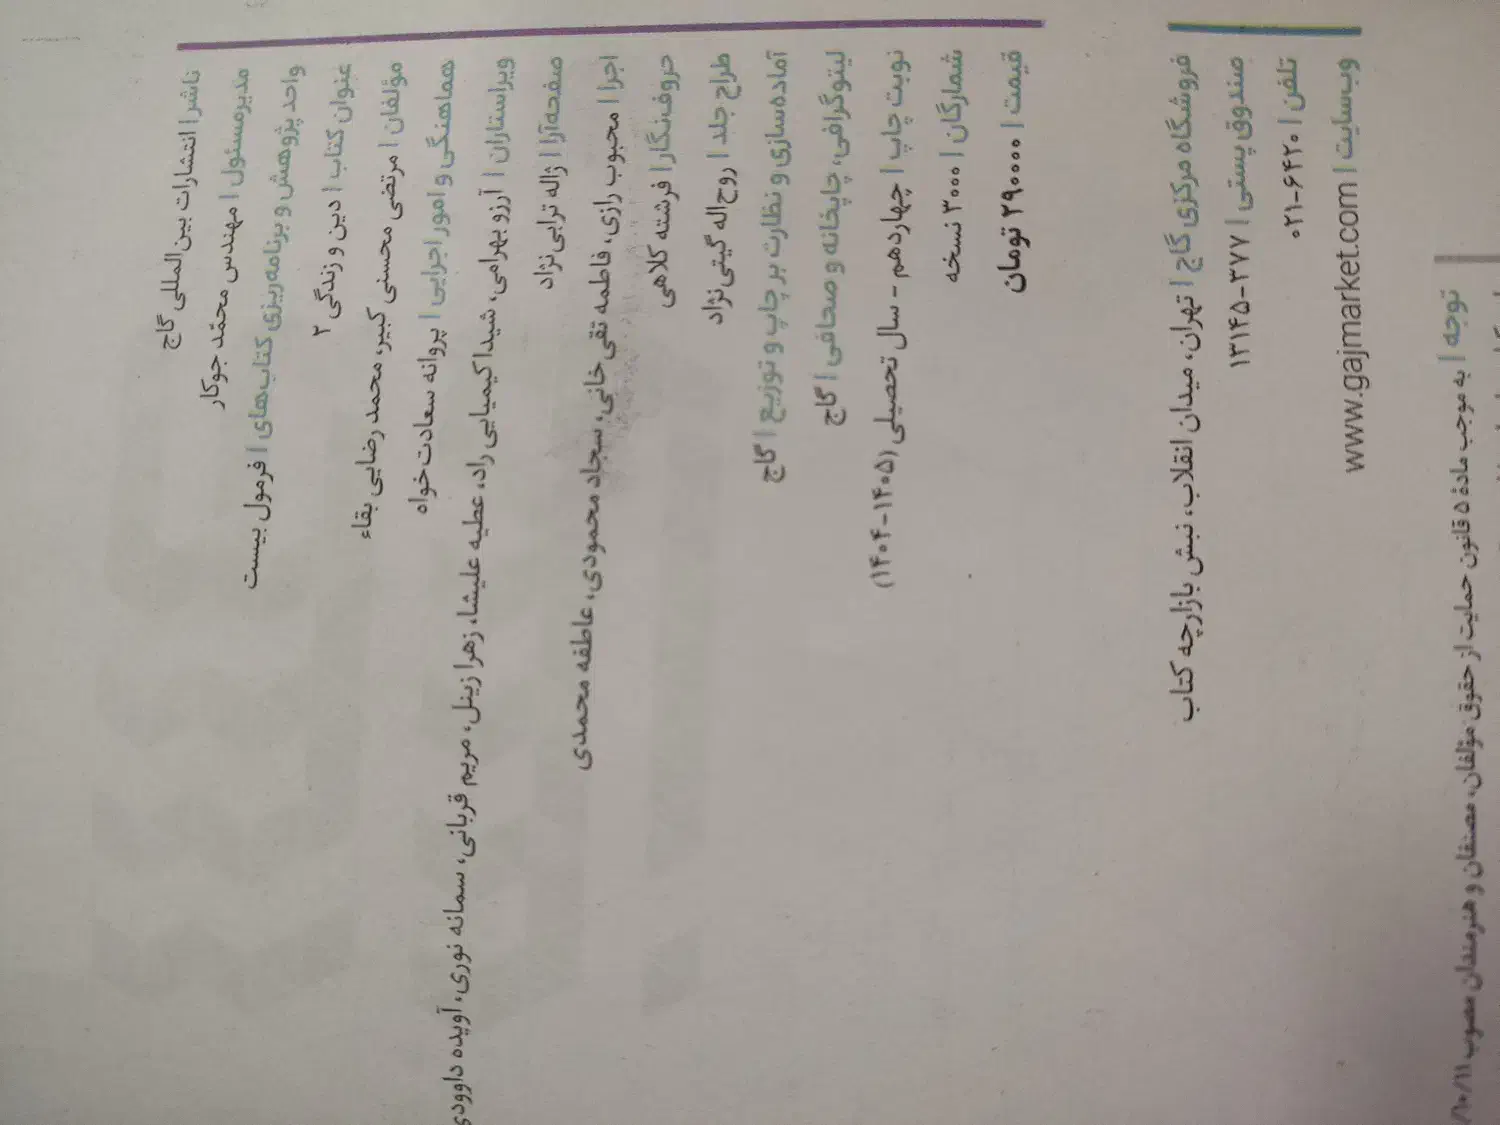 ناشر | انتشارات بین‌المللی گاج
مدیرمسئول | مهندس محمّد جوکار
واحد پژوهش و برنامه‌ریزی کتاب‌های | فرمول بیست
عنوان کتاب | دین و زندگی ۲
مؤلفان | مرتضی محسنی کبیر، محمد رضایی بقاء
هماهنگی و امور اجرایی | پروانه سعادت‌خواه
ویراستاران | آرزو بهرامی، شیدا کیمیایی راد، عطیه علیشا، زهرا زینل، مریم قربانی، سمانه نوری، آویده داوودی
صفحه‌آرا | ژاله ترابی‌نژاد
اجرا | محبوب رازی، فاطمه تقی خانی، سجاد محمودی، عاطفه محمدی
حروف‌نگار | فرشته کلاهی
طراح جلد | روح‌اله گیتی‌نژاد
آماده‌سازی و نظارت بر چاپ و توزیع | گاج
لیتوگرافی، چاپخانه و صحافی | گاج
نوبت چاپ | چهاردهم - سال تحصیلی (۱۴۰۵-۱۴۰۴)
شمارگان | ۳۰۰۰ نسخه
قیمت | ۲۹۰۰۰۰ تومان
فروشگاه مرکزی گاج | تهران، میدان انقلاب، نبش بازارچه کتاب
صندوق پستی | ۳۷۷-۱۳۱۴۵
تلفن | ۶۴۲۰-۰۲۱
وب‌سایت | www.gajmarket.com
توجه | به موجب مادهٔ ۵ قانون حمایت از حقوق مؤلفان، مصنفان و هنرمندان مصوب ۱۰/۱۱/